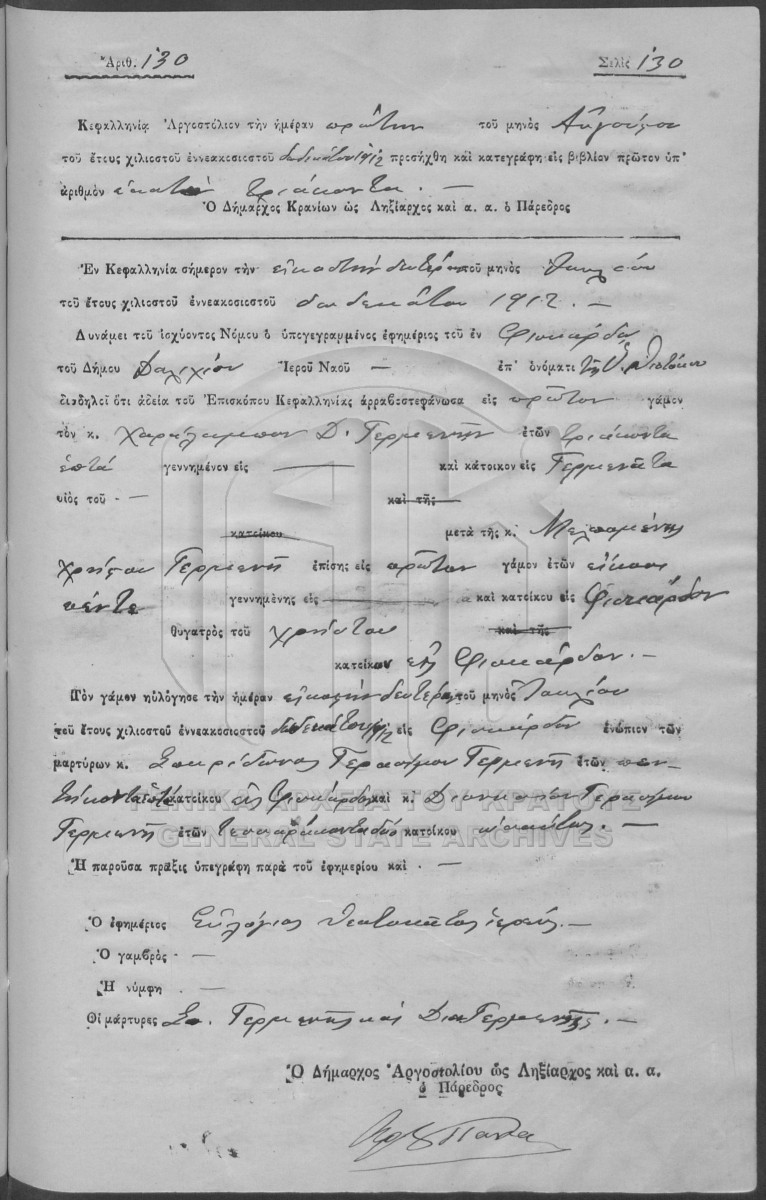 Ἀριθ. 130
Σελὶς 130
Κεφαλληνία Ἀργοστόλιον τὴν ἡμέραν πρώτην τοῦ μηνὸς Αὐγούστου
τοῦ ἔτους χιλιοστοῦ ἐννεακοσιοστοῦ δωδεκάτου 1912 προσήχθη καὶ κατεγράφη εἰς βιβλίον πρῶτον ὑπ'
ἀριθμὸν ἑκατὸν τριάκοντα. —
Ὁ Δήμαρχος Κρανίων ὡς Ληξίαρχος καὶ α. α. ὁ Πάρεδρος
Ἐν Κεφαλληνίᾳ σήμερον τὴν εἰκοστὴν δευτέραν τοῦ μηνὸς Ἰουλίου
τοῦ ἔτους χιλιοστοῦ ἐννεακοσιοστοῦ δωδεκάτου 1912. —
Δυνάμει τοῦ ἰσχύοντος Νόμου ὁ ὑπογεγραμμένος ἐφημέριος τοῦ ἐν Φισκάρδῳ
τοῦ Δήμου Δολιχίου Ἱεροῦ Ναοῦ — ἐπ' ὀνόματι τῆς Ὑ. Θεοτόκου
διαδηλοῖ ὅτι ἀδείᾳ τοῦ Ἐπισκόπου Κεφαλληνίας ἀρραβοστεφάνωσα εἰς πρῶτον γάμον
τὸν κ. Χαράλαμπον Δ. Γερμενῆν ἐτῶν τριάκοντα
ἑπτὰ γεννημένον εἰς — καὶ κάτοικον εἰς Γερμενάτα
υἱὸς τοῦ - — καὶ τῆς
κατοίκου μετὰ τῆς κ. Μελπομένης
Χρήστου Γερμενῆ ἐπίσης εἰς πρῶτον γάμον ἐτῶν εἴκοσι
πέντε γεννημένης εἰς — καὶ κατοίκου εἰς Φισκάρδον
θυγατρὸς τοῦ Χρήστου καὶ τῆς
κατοίκου εἰς Φισκάρδον. —
Τὸν γάμον ηὐλόγησε τὴν ἡμέραν εἰκοστὴν δευτέραν τοῦ μηνὸς Ἰουλίου
τοῦ ἔτους χιλιοστοῦ ἐννεακοσιοστοῦ δωδεκάτου 1912 εἰς Φισκάρδον ἐνώπιον τῶν
μαρτύρων κ. Σπυρίδωνος Γερασίμου Γερμενῆ ἐτῶν πεν-
τήκοντα κατοίκου εἰς Φισκάρδον καὶ κ. Διονυσίου Γερασίμου
Γερμενῆ ἐτῶν τεσσαράκοντα δύο κατοίκου —
ΓΕΝΙΚΑ ΑΡΧΕΙΑ ΤΟΥ ΚΡΑΤΟΥΣ
GENERAL STATE ARCHIVES
Ἡ παροῦσα πρᾶξις ὑπεγράφη παρὰ τοῦ ἐφημερίου καὶ . —
Ὁ ἐφημέριος Εὐλόγιος ἱερεύς. —
Ὁ γαμβρὸς - —
Ἡ νύμφη . —
Οἱ μάρτυρες Σπ. Γερμενῆς καὶ Διον. Γερμενῆς. —
Ὁ Δήμαρχος Ἀργοστολίου ὡς Ληξίαρχος καὶ α. α.
ὁ Πάρεδρος